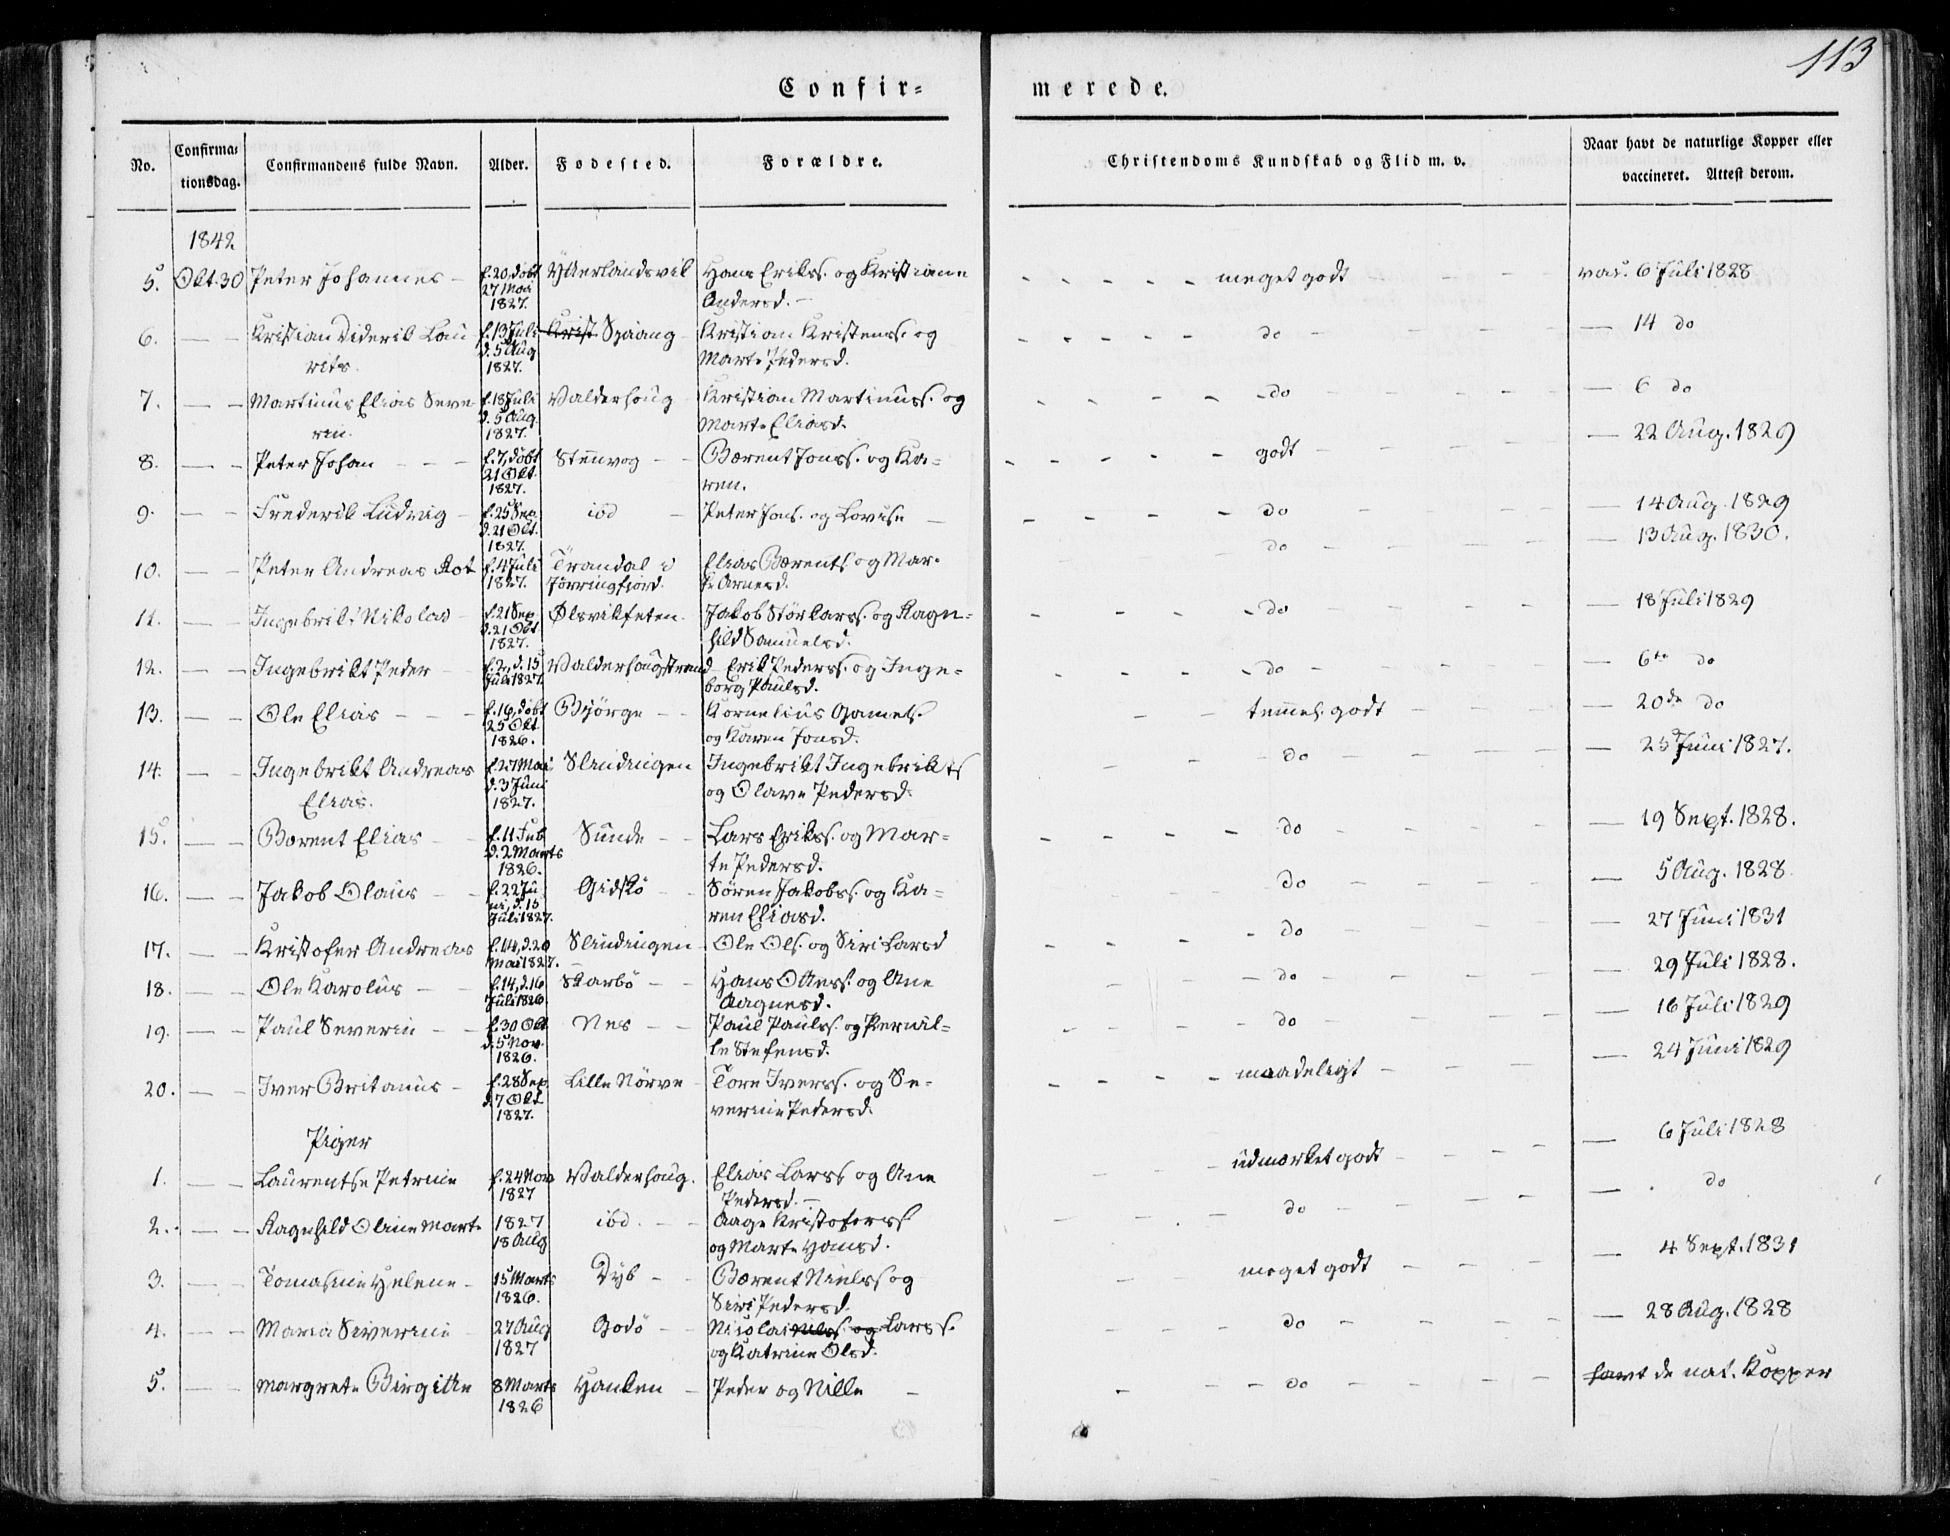 113
Confir=
merede.
No. Confirma=tionsdag. Confirmandens fulde Navn. Alder. Fødested. Forældre. Christendoms Kundskab og Flid m. v. Naar havt de naturlige Kopper eller vaccineret. Attest derom.
1842
5. Okt. 30 Peter Johannes – f. 20, døbt 27 Mai 1827. Ytterlandsvik Hans Erikss. og Kristiane Andersd. – meget godt vac. 6 Juli 1828
6. — — Kristian Diderik Lauritz. f. 13 Juli d. 5 Aug 1827. Krist Kristian Kristenss. og Marte Pedersd. do — 14 do
7. — — Martinus Elias Severin. f. 18 Juli d. 5 Aug 1827. Valderhoug Kristian Martinuss. og Marte Eliasd. do — 6 do
8. — — Peter Johan f. 7, døbt 21 Okt. 1827. Stennvog Bærent Jonss. og Karen. godt — 22 Aug. 1829
9. — — Frederik Ludvig f. 25 Sep. d. 21 Okt. 1827. ibd Peter Jons. og Lovise do — 14 Aug. 1829
10. — — Peter Andreas Kot f. 4 Juli 1827. Trandal i Jørringfjord. Elias Bærents. og Marte Arnesd. do — 13 Aug. 1830.
11. — — Ingebrikt Nikolai f. 21 Sep d. 21 Okt 1827. Ølsvikseten Jakob Størkarss. og Ragnhild Samuelsd. do — 18 Juli 1829
12. — — Ingebrikt Peder f. 2, d. 15 Juli 1827. Valderhougstrand Erik Pederss. og Ingeborg Paulsd. do — 6te do
13. — — Ole Elias f. 16, døbt 25 Okt 1826. Bjørge Kornelius Gamels. og Karen Jonsd. temmel. godt — 20de do
14. — — Ingebrikt Andreas Elias. f. 27 Mai d. 3 Juni 1827. Slindingen Ingebrikt Ingebrikts og Olave Pedersd. do — 25 Juni 1827.
15. — — Bærent Elias f. 11 Feb d. 2 Marts 1826. Sunde Lars Erikss. og Marte Pedersd. do — 19 Sept. 1828.
16. — — Jakob Olaus f. 22 Juni, d. 15 Juli 1827. Gidskø Søren Jakobss. og Karen Eliasd. do — 5 Aug. 1828.
17. — — Kristofer Andreas f. 14, d. 20 Mai 1827. Slindingen Ole Ols. og Siri Larsd do — 27 Juni 1831
18. — — Ole Karolus f. 14, d. 16 Juli 1826. Skarbø Hans Ottess. og Ane Aagnesd. do — 29 Juli 1828.
19. — — Paul Severin f. 30 Okt d. 5 Nov. 1826. Nes Paul Paulss. og Pernille Stefensd. do — 16 Juli 1829
20. — — Iver Britanus f. 28 Sep. d. 7 Okt 1827. Lille Nørve Tore Iverss. og Severine Pedersd. maadeligt — 24 Juni 1829
Piger
1. — — Laurentse Petrine f. 24 Nov 1827 Valderhoug. Elias Larss. og Ane Pedersd. — udmærket godt — 6 Juli 1828
2. — — Ragnhild Oline Marte 1827 18 Aug ibd. Aage Kristoferss og Marte Hansd. do — do
3. — — Tomasine Helene 15 Marts 1826. Dyb Bærent Nielss og Siri Pedersd. meget godt — 4 Sept. 1831
4. — — Maria Siverine 27 Aug 1827 Godø Nicolai Nilss. og Larss. og Katrine Olsd. do — 28 Aug. 1828
5. — — Margrete Birgitte 8 Marts 1826 Hanken Peder og Nille do havt de nat. Kopper